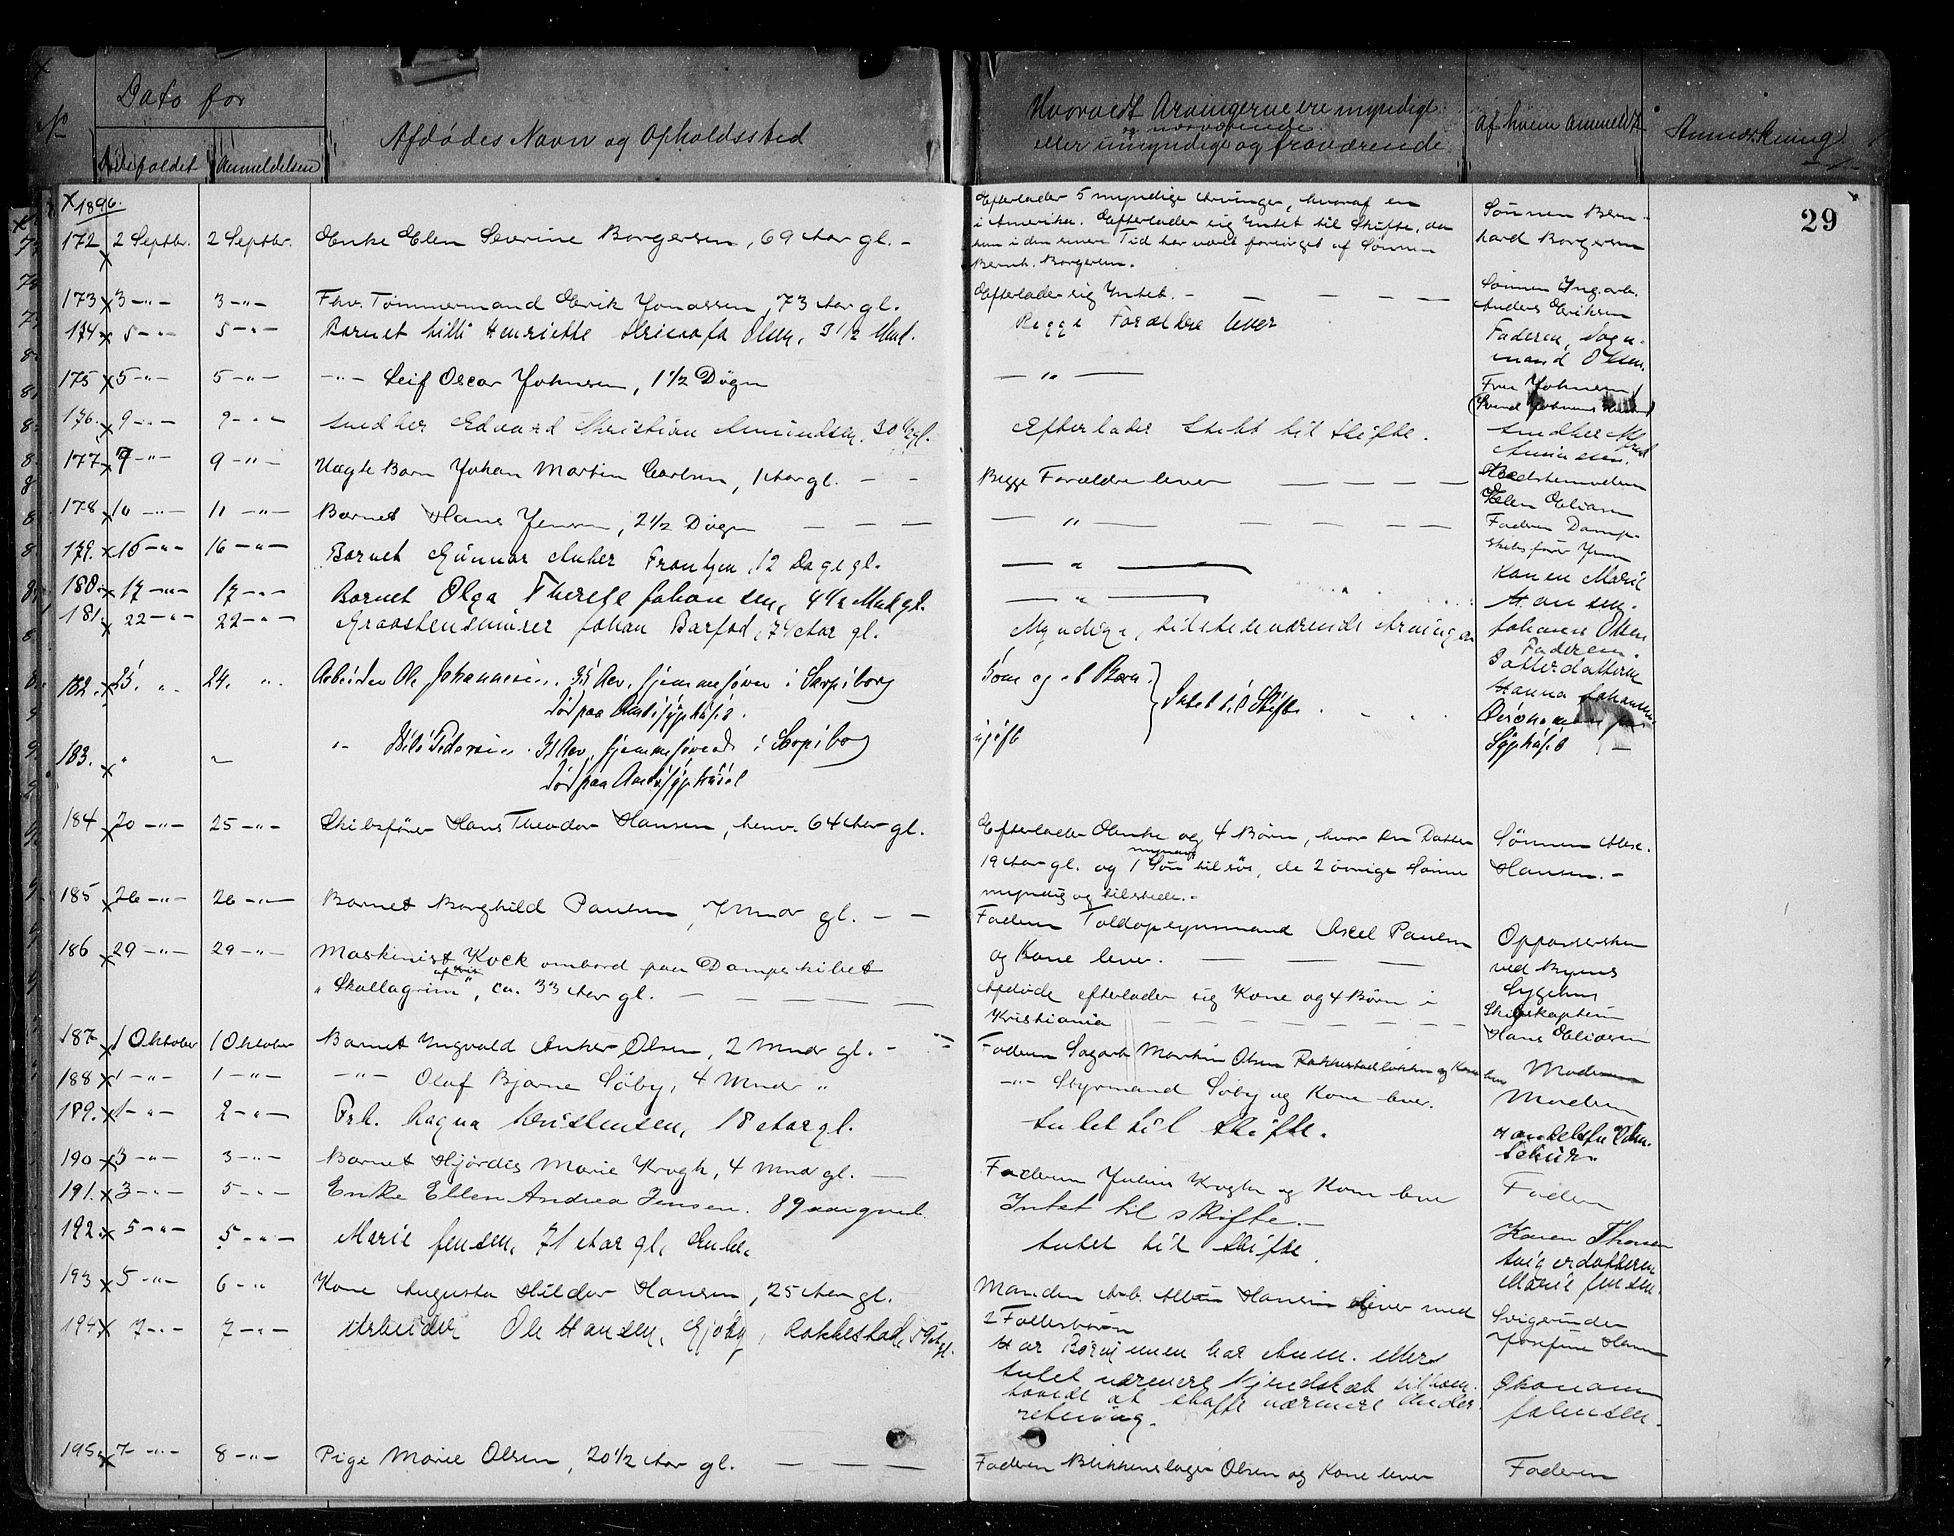 No
Dato for
Dødsfaldet
Anmeldelsen
Afdødes Navn og Opholdssted
Hvorvidt Arvingerne ere myndige
og nærværende
eller umyndige og fraværende
Af hvem anmeldt
Anmærkning
29
1896.
172 2 Septbr. 2 Septbr. Enke Elen Severine Borgersen, 69 Aar gl. -
Efterlader 5 myndige Arvinger, hvoraf en
i Amerika. Efterlader sig Intet til Skifte, da
hun i den senere Tid har været forsørget af Sønnen
Bernh. Borgersen.
Sønnen Bern-
hard Borgersen
173 3 -"- 3 -"- Fhv. Tømmermand Erik Jonassen, 73 Aar gl.
Efterlader sig Intet. -
Sønnen
Anders Eriksen
174 5 -"- 5 -"- Barnet Henriette Olsen, 3 1/2 Mnd.
Begge Forældre lever
Faderen,
mand Olsen.
175 5 -"- 5 -"- -"- Leif Oscar Johnsen, 1 1/2 Døgn
- " -
Fru Johnsen
176. 9 -"- 9 -"- Snedker Edvard Christian Amundsen, 30 Aar gl.
Efterlader Intet til Skifte.
Snedker
Amundsen.
177 9 -"- 9 -"- Uægte Barn Johan Martin Carlsen, 1 Aar gl. - -
Begge Forældre lever
Elen Eliasen
178 10 -"- 11 -"- Barnet Hans Jensen, 2 1/2 Døgn
- " -
Faderen Damp-
skibsfører Jensen
179. 15 -"- 16 -"- Barnet Gunnar Anker Frantzen, 12 Dage gl.
- " -
Konen Marie
Hansen.
180. 17 -"- 17 -"- Barnet Olga Therese Johansen, 4 1/2 Mnd gl.
- " -
Johanne Olsen
Faderen.
181. 22 -"- 22 -"- Graastensmurer Johan Barfod, 74 Aar gl.
Myndige, tilstedeværende Arvinger
Datterdatteren
Hanna Johansen
182. 23. " 24. " Arbeider Ole Johannesen. Aar, hjemmehørende i Skrpiborg
Død paa Amtssygehuset.
Kone og Børn.
Intet til Skifte
Sygehuset
183. " Nils Pedersen. Aar, hjemmehørende i Skrpiborg
Død paa Amtssygehuset
ugift
184 20 -"- 25 -"- Skibsfører Hans Theodor Hansen, henv. 64 Aar gl.
Efterlader Enke og 4 Børn, hvor en Datter
19 Aar gl. og 1 myndig Søn tilsøs, de 2 øvrige Sønner
myndig og tilstede. -
Sønnen Alex.
Hansen. -
185 26 -"- 26 -"- Barnet Borghild Paulsen, 7 Mndr gl. - -
Faderen Toldopsynsmand Axel Paulsen
og Kone lever.
Oppasersken
ved Byens
Sygehus
186 29 -"- 29 -"- Maskinist Kock ombord paa Dampskibet
"Skallagrim" af Kris, ca. 33 Aar gl.
Afdøde efterlader sig Kone og 4 Børn i
Kristiania
Skibskaptein
Hans Eliasen
187 1 Oktober 1 Oktober Barnet Ingvald Anker Olsen, 2 Mndr gl. -
Faderen Sagarb. Martin Olsen Rakkestadløkken og Kone lever
Moderen
188 1 -"- 1 -"- -"- Olaf Bjarne Søby, 4 Mndr "
-"- Styrmand Søby og Kone lever.
Moderen
189. 1 -"- 2 -"- Frk. Ragna Kristensen, 18 Aar gl.
Intet til Skifte.
190 3 -"- 3 -"- Barnet Hjørdis Marie Krogh, 4 Mndr gl.
Faderen Julius Krogh og Kone lever
Faderen
191. 3 -"- 5 -"- Enke Ellen Andrea Jensen. 89 aar gml.
Intet til skifte. -
Karen Thoresen
192. 5 -"- 5 -"- Marie Jensen, 71 Aar gl, Enke.
Intet til Skifte.
Svigerdatteren
Marie Jensen.
193 5 -"- 6 -" Kone Augusta Hilda Hansen, 25 Aar gl.
Manden Arb. Hansen lever med
2 Fællesbørn
Svigerinden
Josefine Hansen
194 7 -"- 7 -"- Arbeider Ole Hansen, Gjøby, Rakkestad, 59 Aar gl.
Har Børn, men har Anm. ellers
Intet nærmere Kjendskab til ham
lovede at skaffe nærmere Under-
retning.
Økonom
Johnsen.
195 7 -"- 8 -"- Pige Marie Olsen, 20 1/2 Aar gl.
Faderen Blikkenslager Olsen og Kone lever
Faderen